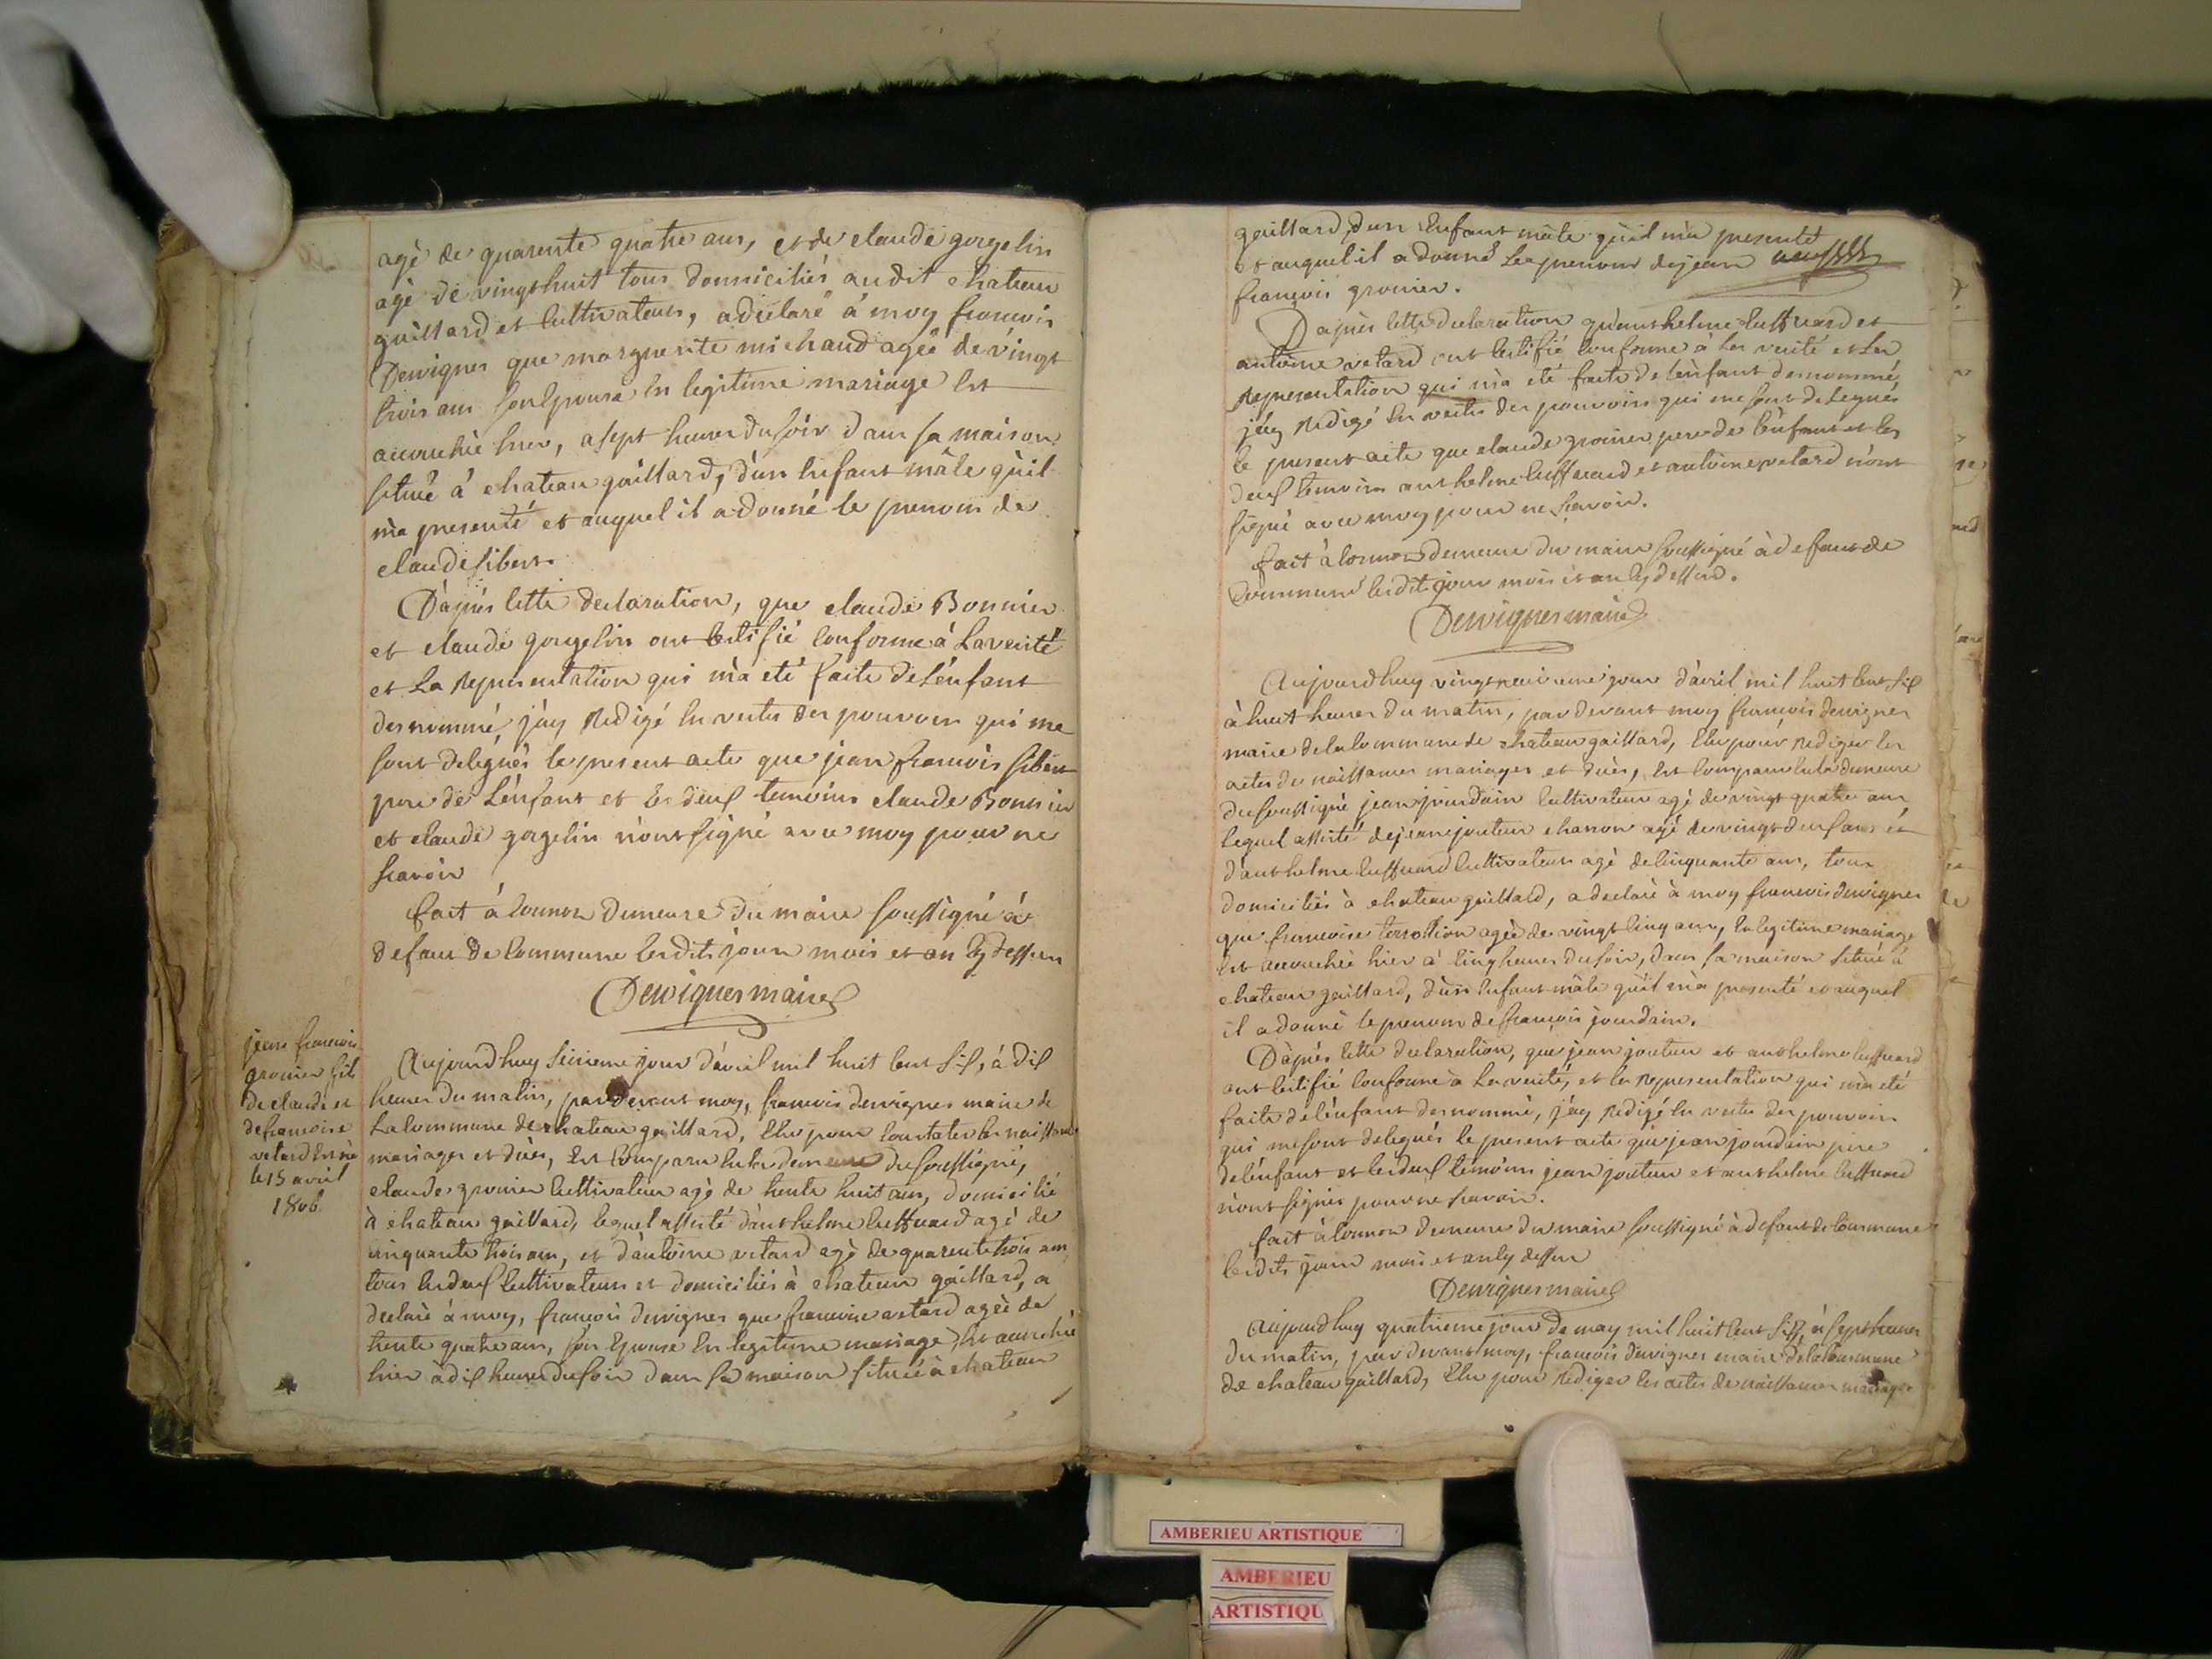 agé de quarente quatre ans, et de claude gorgelin
agé de vingt huit tous domiciliés audit chateau
gaillard et cultivateurs, a déclaré à moy francois
Dervignes que marguerite michaud agée de vingt
trois ans son epouse en legitime mariage est
accouchée hier, a sept heures du soir dans sa maison
située à chateau gaillard, d'un enfant mâle qu'il
m'a presenté et auquel il a donné le prenom de
claude sibert.
D'après cette declaration, que claude Bonnier
et claude gorgelin ont certifié conforme à la verité
et la representation qui m'a eté faite de l'enfant
denommé, j'ay redigé en vertu des pouvoirs qui me
sont delegués le present acte que jean francois sibert
pere de l'enfant et les deux temoins claude Bonnier
et claude gorgelin n'ont signé avec moy pour ne
scavoir
fait à Cormoz demeure du maire soussigné à
defaut de commune lesdits jour mois et an cy dessus
Dervignes maire
jean francois
gronier fils
de claude et
de francoise
vetard est né
le 15 avril
1806
Aujourdhuy seizieme jour d'avril mil huit cent six, à dix
heures du matin, pardevant moy, francois dervignes maire de
la commune de chateau gaillard, elu pour constater les naissances
mariages et décès, est comparu en la demeure du soussigné,
claude gronier cultivateur agé de trente huit ans, domicilié
à chateau gaillard, lequel assisté d'anthelme cussuard agé de
cinquante trois ans, et d'antoine vetard agé de quarente trois ans
tous les deux cultivateurs et domiciliés à chateau gaillard, a
declaré à moy, francois dervignes que francoise vetard agée de
trente quatre ans, son epouse en legitime mariage, est accouchée
hier à dix heures du soir dans sa maison située à chateau
gaillard, d'un enfant mâle qu'il m'a presenté
et auquel il a donné le prenom de jean
francois gronier.
D'après cette declaration qu'anthelme cussuard et
antoine vetard ont certifié conforme à la verité et la
representation qui m'a eté faite de l'enfant denommé,
j'ay redigé en vertu des pouvoirs qui me sont delegués
le present acte que claude gronier pere de l'enfant et les
deux temoins anthelme cussuard et antoine vetard n'ont
signé avec moy pour ne scavoir.
fait à Cormoz demeure du maire soussigné à defaut de
commune lesdits jour mois et an cy dessus.
Dervignes maire
Aujourdhuy vingt neuvieme jour d'avril mil huit cent six
à huit heures du matin, par devant moy francois dervignes
maire de la commune de chateau gaillard, elu pour rediger les
actes de naissances mariages et décès, est comparu en la demeure
du soussigné jean jourdain cultivateur agé de vingt quatre ans
lequel assisté de jean jouteur charron agé de vingt deux ans et
d'anthelme cussuard cultivateur agé de cinquante ans, tous
domiciliés à chateau gaillard, a declaré à moy francois dervignes
que francoise agée de vingt cinq ans, en legitime mariage
est accouchée hier à cinq heures du soir, dans sa maison située à
chateau gaillard, d'un enfant mâle qu'il m'a presenté et auquel
il a donné le prenom de francois jourdain.
D'après cette declaration, que jean jouteur et anthelme cussuard
ont certifié conforme à la verité, et la representation qui m'a eté
faite de l'enfant denommé, j'ay redigé en vertu des pouvoirs
qui me sont delegués le present acte que jean jourdain pere
de l'enfant et les deux temoins jean jouteur et anthelme cussuard
n'ont signés pour ne scavoir.
fait à Cormoz demeure du maire soussigné à defaut de commune
lesdits jour mois et an cy dessus
Dervignes maire
Aujourdhuy quatrieme jour de may mil huit cent six, à sept heures
du matin, par devant moy, francois dervignes maire de la commune
de chateau gaillard, elu pour rediger les actes de naissances mariages
AMBERIEU ARTISTIQUE
AMBERIEU
ARTISTIQU